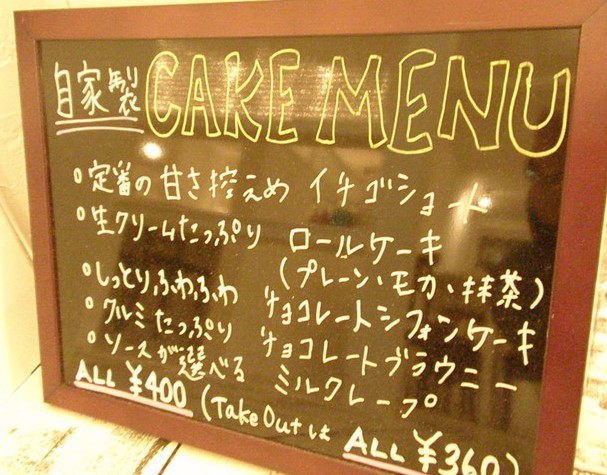 自家製 CAKE MENU
・定番の甘さ控えめ イチゴショート
・生クリームたっぷり ロールケーキ
(プレーン、モカ、抹茶)
・しっとり、ふわふわ チョコレートシフォンケーキ
・クルミたっぷり チョコレートブラウニー
・ソースが選べる ミルクレープ
ALL ¥400 (Take Outは ALL ¥360)